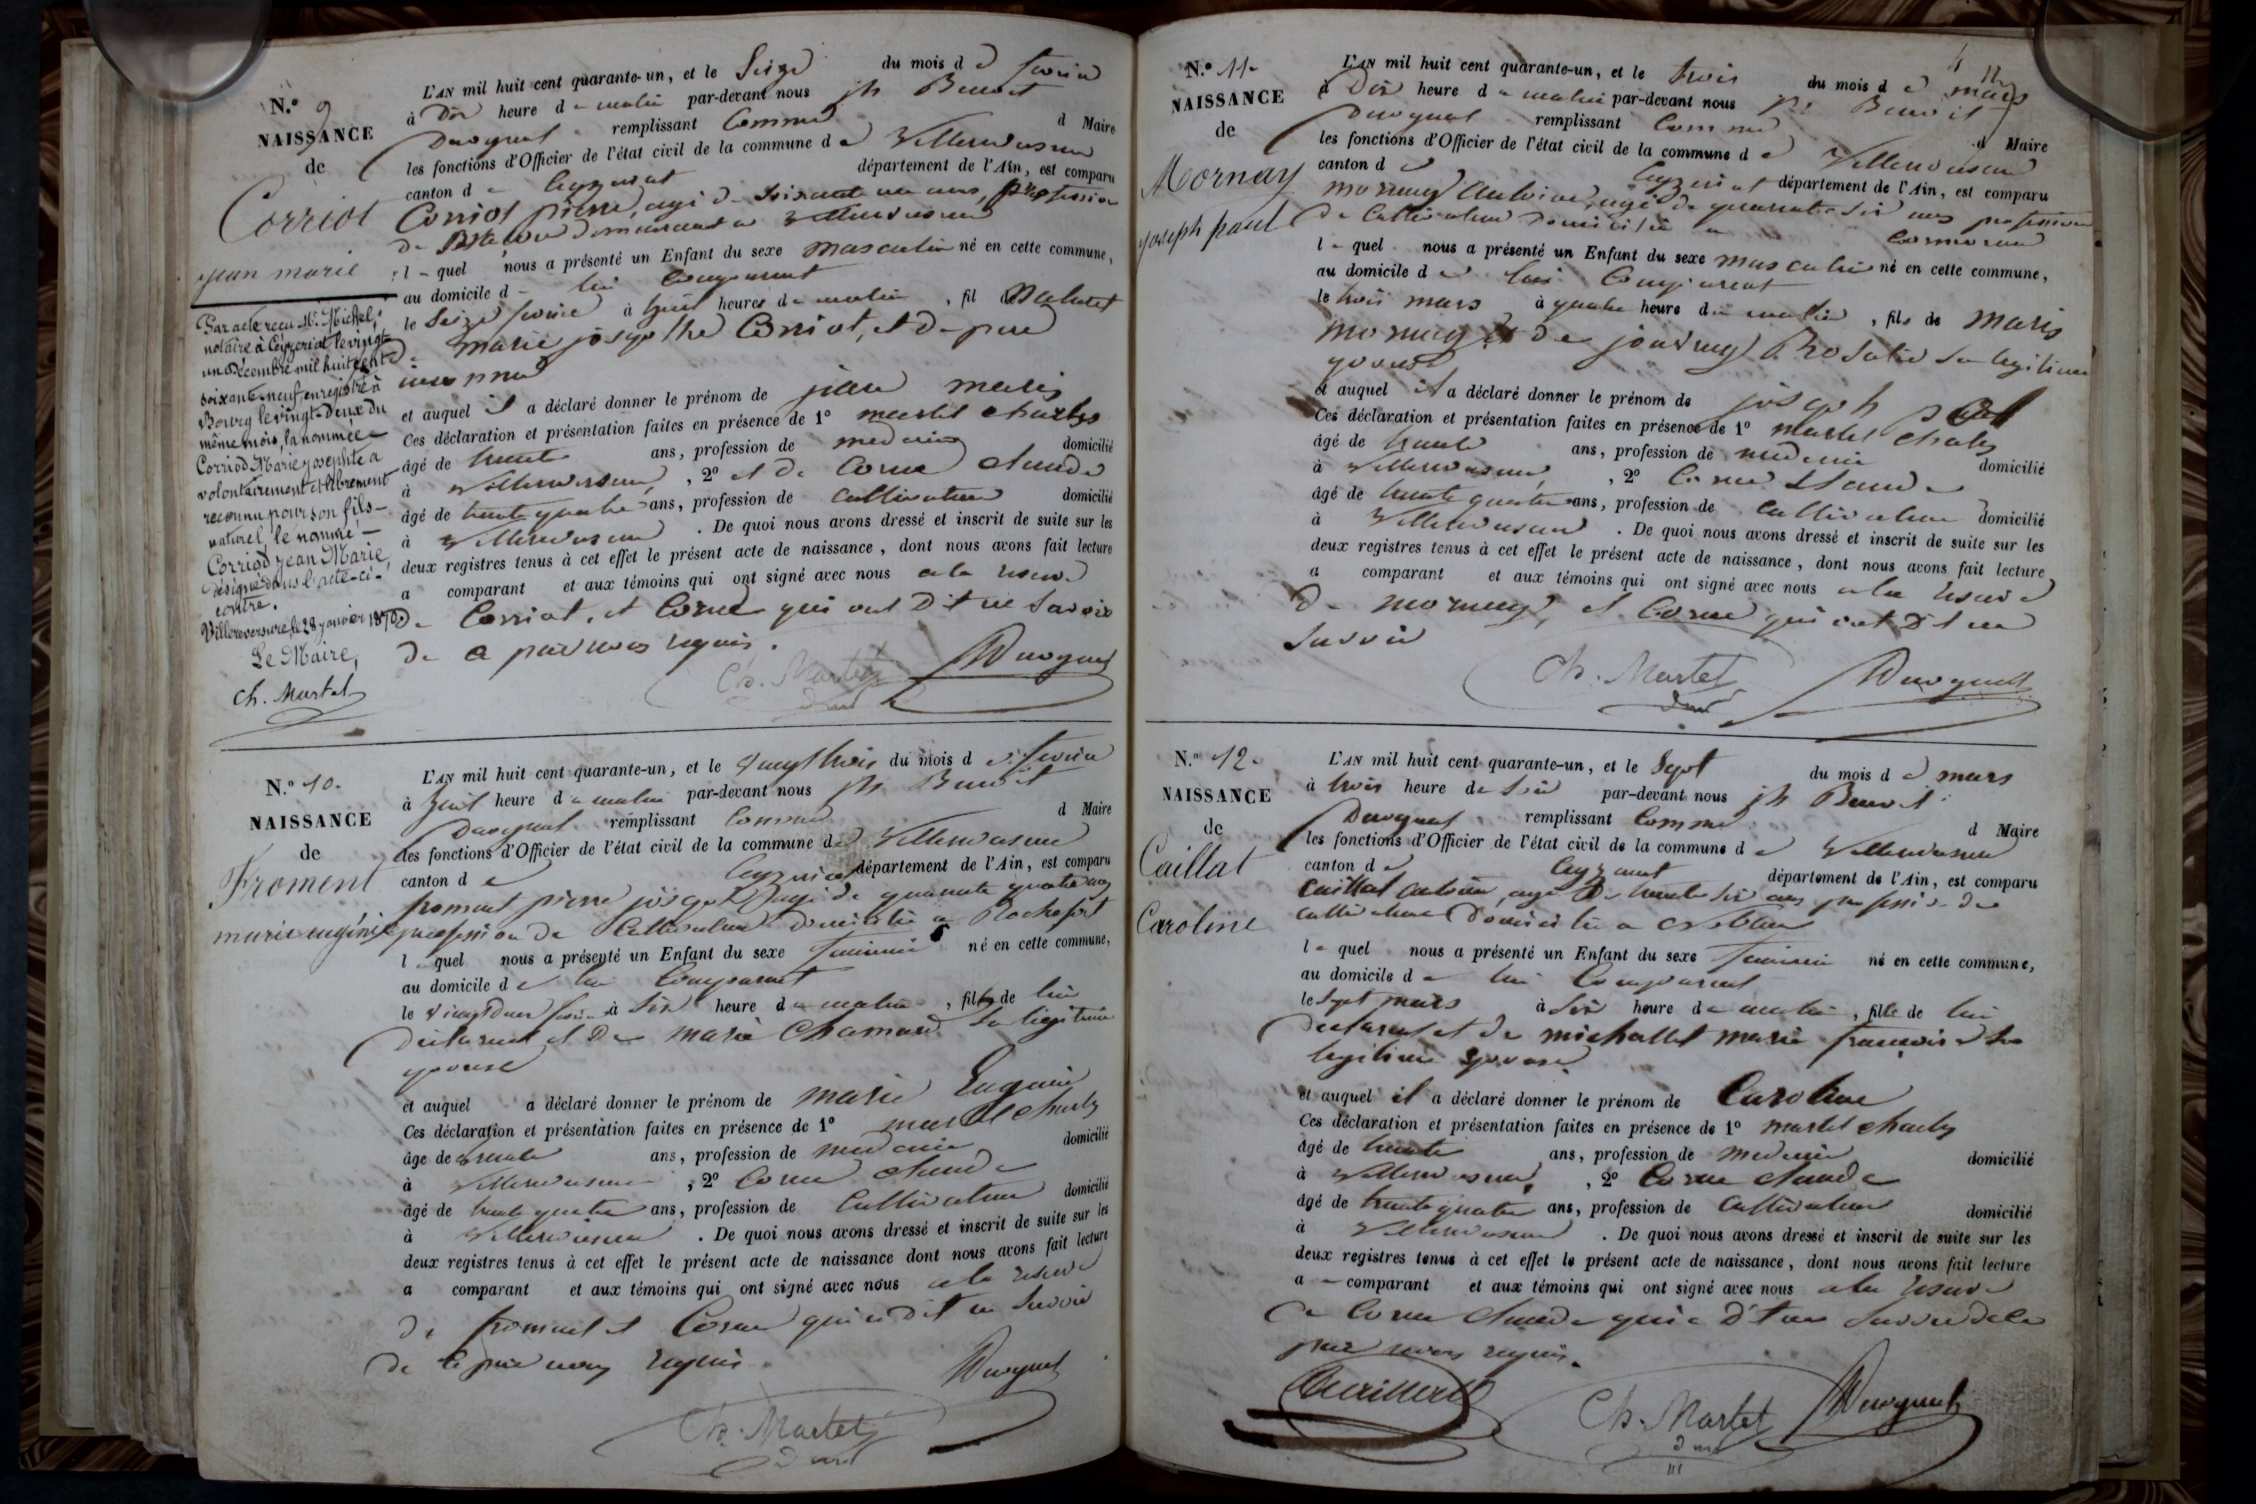 N.º 9
NAISSANCE
de
Corriot
jean marie
Par acte recu Mr. Michel,
notaire à Ceyzeriat le vingt
un Décembre mil huit cent
soixante-neuf enregistré à
Bourg le vingt-deux du
même mois, la nommée
Corriod Marie Josephte a
volontairement et librement
reconnu pour son fils
naturel, le nommé
Corriod Jean Marie,
désigné dans l'acte ci-
contre.
Villereversure, le 28 janvier 1870.
Le Maire,
Ch. Martel
L'AN mil huit cent quarante-un, et le Seize du mois de fevrier
à Dix heure du matin par-devant nous jh Benoit
Duvognat remplissant Comme d Maire
les fonctions d'Officier de l'état civil de la commune de Villereversure
canton de Ceyzeriat département de l'Ain, est comparu
Corriot pierre, agé de soixante un ans, profession
de demeurant a Villereversure
lequel nous a présenté un Enfant du sexe masculin né en cette commune,
au domicile de lui Comparant
le Seize fevrier à huit heures du matin, fil Naturel
de marie josephte Corriot, et de pere
inconnu
et auquel il a déclaré donner le prénom de jean marie
Ces déclaration et présentation faites en présence de 1º martel charles
âgé de trente ans, profession de medecin domicilié
à Villereversure, 2º et de Corne claude
âgé de trente quatre ans, profession de cultivateur domicilié
à Villereversure. De quoi nous avons dressé et inscrit de suite sur les
deux registres tenus à cet effet le présent acte de naissance, dont nous avons fait lecture
a comparant et aux témoins qui ont signé avec nous a la reserve
de Corriot, et Corne qui ont Dit ne Savoir
de ce par nous requis.
Ch. Martel Duvognat
N.º 10.
NAISSANCE
de
Froment
marie eugénie
L'AN mil huit cent quarante-un, et le vingt trois du mois de fevrier
à huit heure du matin par-devant nous jh Benoit
Duvognat remplissant Comme d Maire
les fonctions d'Officier de l'état civil de la commune de Villereversure
canton de Ceyzeriat département de l'Ain, est comparu
froment pierre joseph agé de quarante quatre ans
profession de Cultivateur domicilié a Rochefort
lequel nous a présenté un Enfant du sexe feminin né en cette commune,
au domicile de lui Comparant
le vingt deux fevrier à Six heure du matin, fille de lui
declarant et De marie Chamard Sa legitime
epouse
et auquel a déclaré donner le prénom de marie Eugenie
Ces déclaration et présentation faites en présence de 1º martel charles
âgé de trente ans, profession de medecin domicilié
à Villereversure, 2º Corne claude
âgé de trente quatre ans, profession de Cultivateur domicilié
à Villereversure. De quoi nous avons dressé et inscrit de suite sur les
deux registres tenus à cet effet le présent acte de naissance dont nous avons fait lecture
a comparant et aux témoins qui ont signé avec nous a la reserve
de froment et Corne qui a dit ne Savoir
de ce par nous requis.
Ch. Martel Duvognat
4
N.º 11.
NAISSANCE
de
Mornay
joseph paul
L'AN mil huit cent quarante-un, et le trois du mois de mars
à Dix heure du matin par-devant nous jh Benoit
Duvognat remplissant Comme d Maire
les fonctions d'Officier de l'état civil de la commune de Villereversure
canton de Ceyzeriat département de l'Ain, est comparu
mornay antoine, agé de quarante six ans profession
de Cultivateur Domicilié a Cormoran
lequel nous a présenté un Enfant du sexe masculin né en cette commune,
au domicile de lui Comparant
le trois mars à quatre heure du matin, fils de Marie
mornay et de journey Rosalie Sa legitime
epouse
et auquel il a déclaré donner le prénom de joseph paul
Ces déclaration et présentation faites en présence de 1º martel charles
âgé de trente ans, profession de medecin domicilié
à Villereversure, 2º Corne claude
âgé de trente quatre ans, profession de Cultivateur domicilié
à Villereversure. De quoi nous avons dressé et inscrit de suite sur les
deux registres tenus à cet effet le présent acte de naissance, dont nous avons fait lecture
a comparant et aux témoins qui ont signé avec nous a la reserve
de mornay, et Corne qui ont Dit ne
Savoir
Ch. Martel Duvognat
N.º 12.
NAISSANCE
de
Caillat
Caroline
L'AN mil huit cent quarante-un, et le Sept du mois de mars
à trois heure de Soir par-devant nous jh Benoit
Duvognat remplissant Comme d Maire
les fonctions d'Officier de l'état civil de la commune de Villereversure
canton de Ceyzeriat département de l'Ain, est comparu
caillat antoine, agé De trente six ans profession de
cultivateur Domicilié a
lequel nous a présenté un Enfant du sexe feminin né en cette commune,
au domicile de lui Comparant
le Sept mars à Six heure du matin, fille de lui
declarant et de michallet marie françoise Sa
legitime epouse.
et auquel il a déclaré donner le prénom de Caroline
Ces déclaration et présentation faites en présence de 1º martel charles
âgé de trente ans, profession de medecin domicilié
à Villereversure, 2º Corne claude
âgé de trente quatre ans, profession de Cultivateur domicilié
à Villereversure. De quoi nous avons dressé et inscrit de suite sur les
deux registres tenus à cet effet le présent acte de naissance, dont nous avons fait lecture
a comparant et aux témoins qui ont signé avec nous a la reserve
de Corne claude qui a Dit ne Savoir de ce
par nous requis.
Caillat Ch. Martel Duvognat